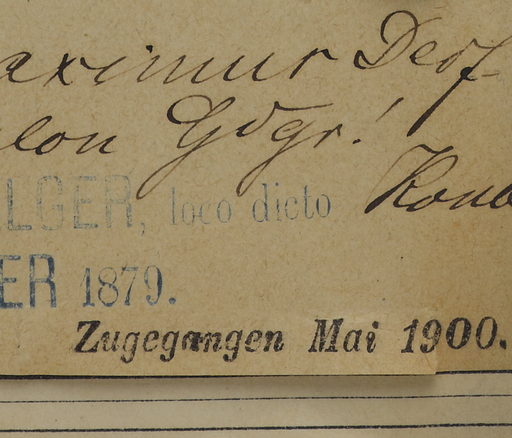 aximur Desf-
lon Gdgr!
LGER, loco dicto
ER 1879.
Zugegangen Mai 1900.